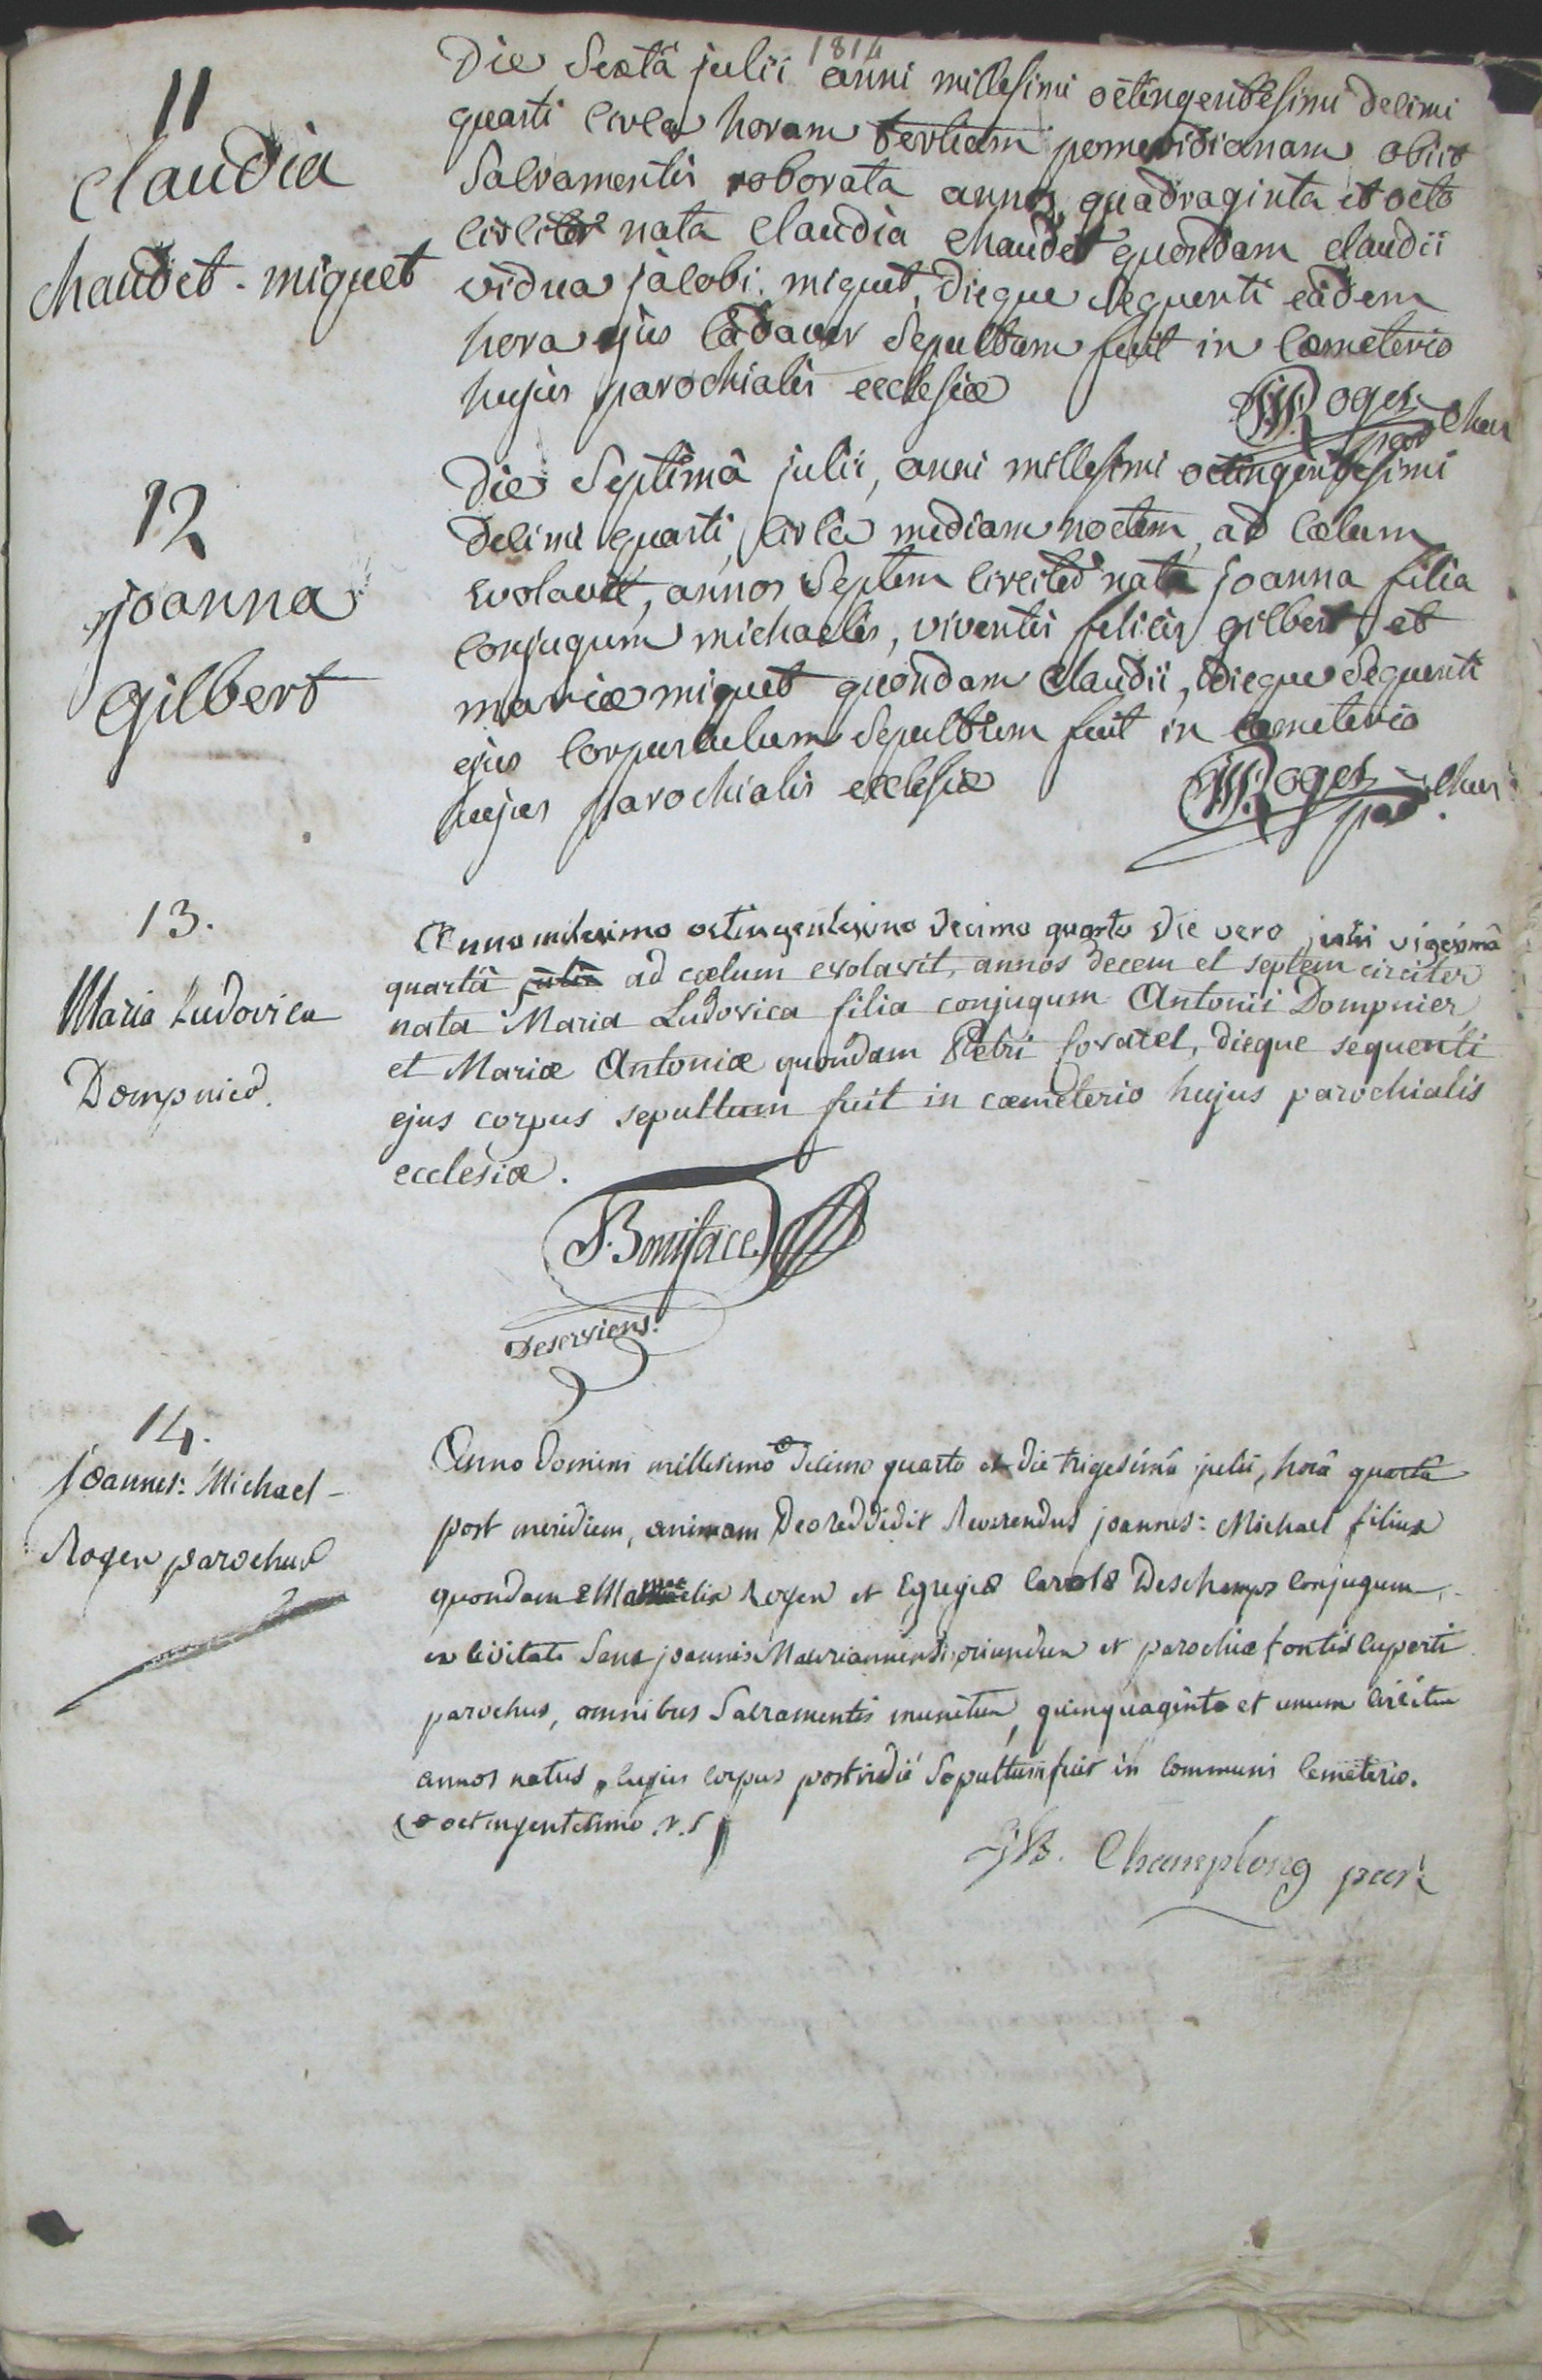 1814
11
Claudia
Chaudet - miquet
Die Sextâ julii anni millesimi octingentesimi decimi
quarti circa horam tertiam pomeridianam obiit
Sacramentis roborata annos quadraginta et octo
circiter nata Claudia Chaudet quondam Claudii
vidua jacobi miquet, dieque sequenti eâdem
hora ejus cadaver sepultum fuit in cœmeterio
hujus parochialis ecclesiæ
JM Roger parochus
12
joanna
gilbert
Die Septimâ julii, anni millesimi octingentesimi
decimi quarti, circa mediam noctem, ad cœlum
evolavit, annos Septem circiter nata joanna filia
conjugum michaelis, viventis felicis gilbert, et
mariæ miquet quondam Claudii, dieque sequenti
ejus corpusculum sepultum fuit in cœmeterio
hujus parochialis ecclesiæ
JM Roger parochus
13.
Maria Ludovica
Dompnier
Anno milesimo octingentesimo decimo quarto die vero julii vigesimâ
quartâ julii ad cœlum evolavit, annos decem et septem circiter
nata Maria Ludovica filia conjugum Antonii Dompnier,
et Mariæ Antoniæ quondam Petri Covatel, dieque sequenti
ejus corpus sepultum fuit in cœmeterio hujus parochialis
ecclesiæ.
Boniface
Deserviens.
14.
Joannes: Michael -
Roger parochus
Anno Domini millesimo decimo quarto et die trigesimâ julii, horâ quartâ
post meridiem, animam Deo reddidit Reverendus joannes: Michael filius
quondam Roger et Egregiæ Carolæ Deschamps conjugum,
ex civitate Sanc joannis Maurianniensis oriundus et parochiæ fontis cuperti
parochus, omnibus Sacramentis munitus, quinquaginta et unum circiter
annos natus, cujus corpus postridiè Sepultum fuit in communi cemeterio.
(o octingentesimo. r. s
JB. Champlong par: